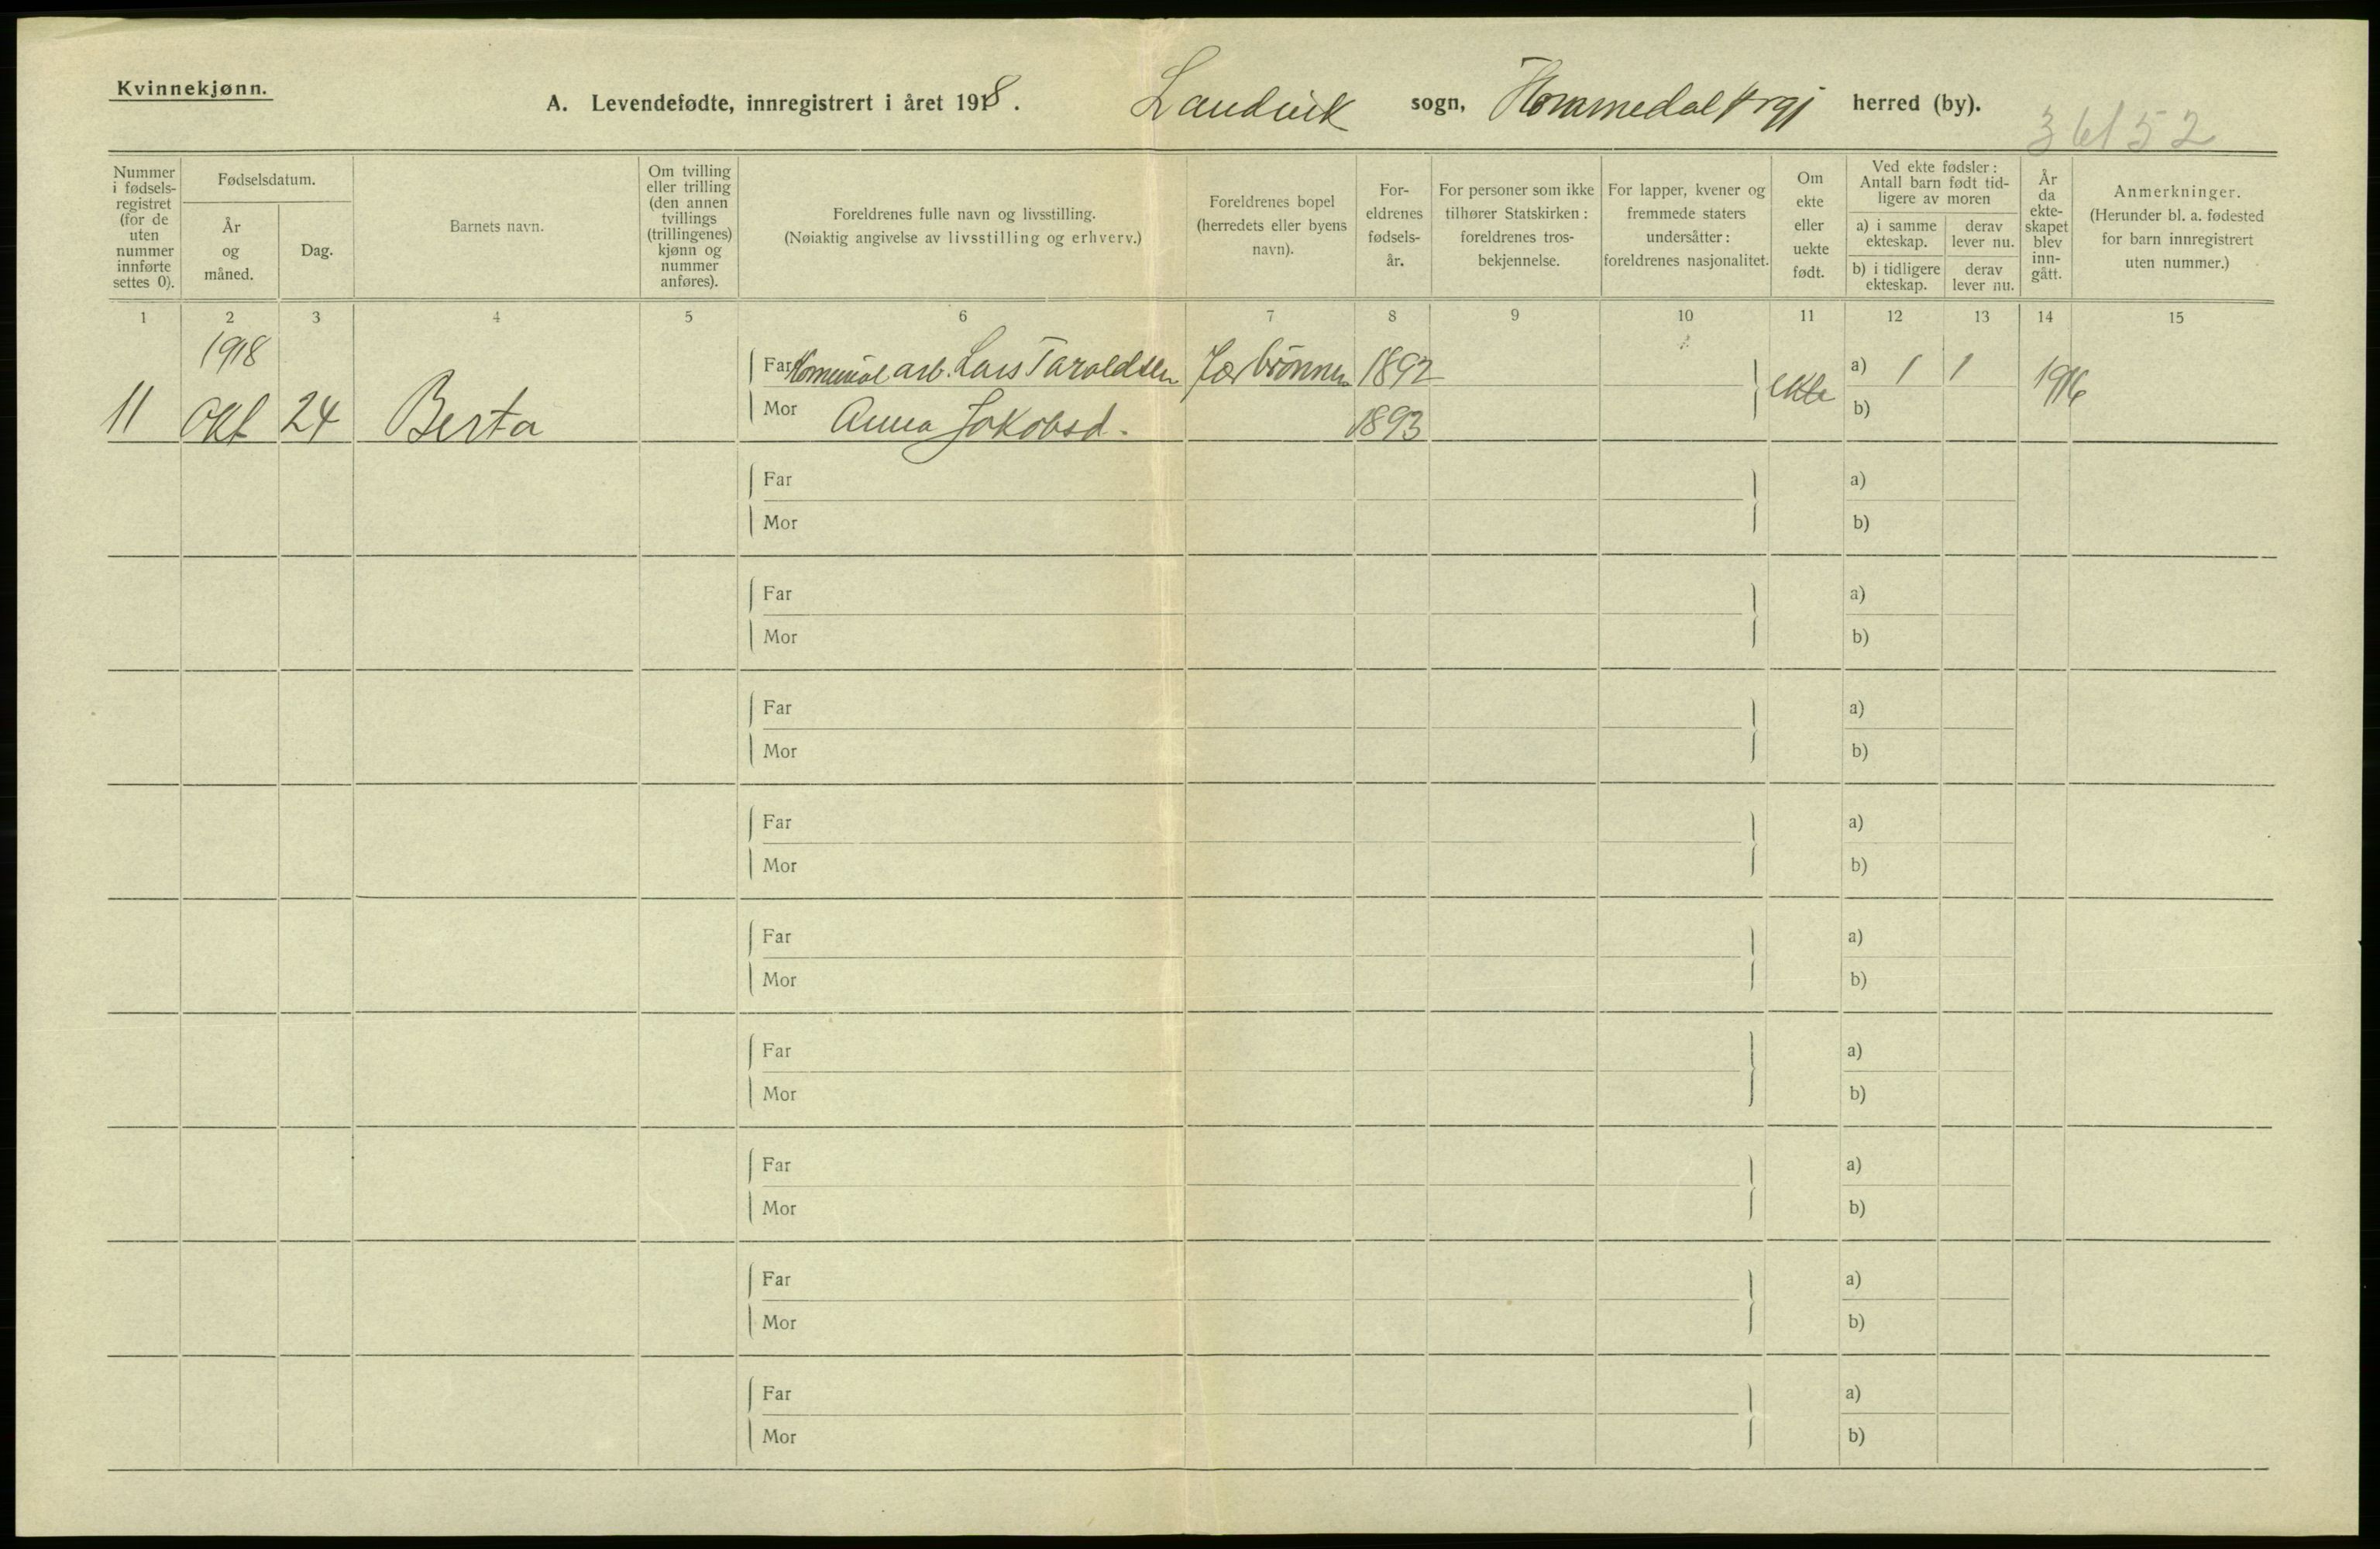 Kvinnekjønn.
A. Levendefødte, innregistrert i året 1918. Landvik sogn, Hommedal prgj herred (by).
36152
Nummer i fødsels-registret (for de uten nummer innførte settes 0).
Fødselsdatum.
År og måned.
Dag.
Barnets navn.
Om tvilling eller trilling (den annen tvillings (trillingenes) kjønn og nummer anføres).
Foreldrenes fulle navn og livsstilling.
(Nøiaktig angivelse av livsstilling og erhverv.)
Foreldrenes bopel (herredets eller byens navn).
For-eldrenes fødsels-år.
For personer som ikke tilhører Statskirken: foreldrenes tros-bekjennelse.
For lapper, kvener og fremmede staters undersåtter: foreldrenes nasjonalitet.
Om ekte eller uekte født.
Ved ekte fødsler: Antall barn født tid-ligere av moren
a) i samme ekteskap.
derav lever nu.
b) i tidligere ekteskap.
derav lever nu.
År da ekte-skapet blev inn-gått.
Anmerkninger.
(Herunder bl. a. fødested for barn innregistrert uten nummer.)
1 2 3 4 5 6 7 8 9 10 11 12 13 14 15
1918
Far arb. Lars Taraldsen 1892 a) 1 1
11 Okt 24 Berta ekte 1916
Mor Anna Jakobsd. 1893 b)
Far a)
Mor b)
Far a)
Mor b)
Far a)
Mor b)
Far a)
Mor b)
Far a)
Mor b)
Far a)
Mor b)
Far a)
Mor b)
Far a)
Mor b)
Far a)
Mor b)